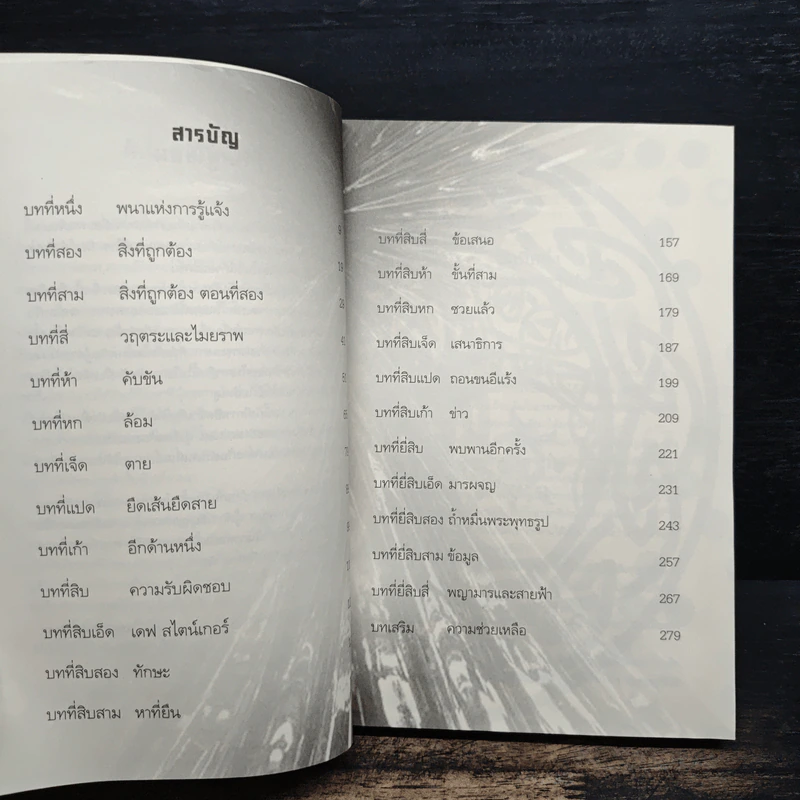 สารบัญ
บทที่หนึ่ง พนาแห่งการรู้แจ้ง
บทที่สอง สิ่งที่ถูกต้อง
บทที่สาม สิ่งที่ถูกต้อง ตอนที่สอง
บทที่สี่ วฤตระและไมยราพ
บทที่ห้า คับขัน
บทที่หก ล้อม
บทที่เจ็ด ตาย
บทที่แปด ยืดเส้นยืดสาย
บทที่เก้า อีกด้านหนึ่ง
บทที่สิบ ความรับผิดชอบ
บทที่สิบเอ็ด เดฟ สไตน์เกอร์
บทที่สิบสอง ทักษะ
บทที่สิบสาม หาที่ยืน
บทที่สิบสี่ ข้อเสนอ 157
บทที่สิบห้า ขั้นที่สาม 169
บทที่สิบหก ซวยแล้ว 179
บทที่สิบเจ็ด เสนาธิการ 187
บทที่สิบแปด ถอนขนอีแร้ง 199
บทที่สิบเก้า ข่าว 209
บทที่ยี่สิบ พบพานอีกครั้ง 221
บทที่ยี่สิบเอ็ด มารผจญ 231
บทที่ยี่สิบสอง ถ้ำหมื่นพระพุทธรูป 243
บทที่ยี่สิบสาม ข้อมูล 257
บทที่ยี่สิบสี่ พญามารและสายฟ้า 267
บทเสริม ความช่วยเหลือ 279